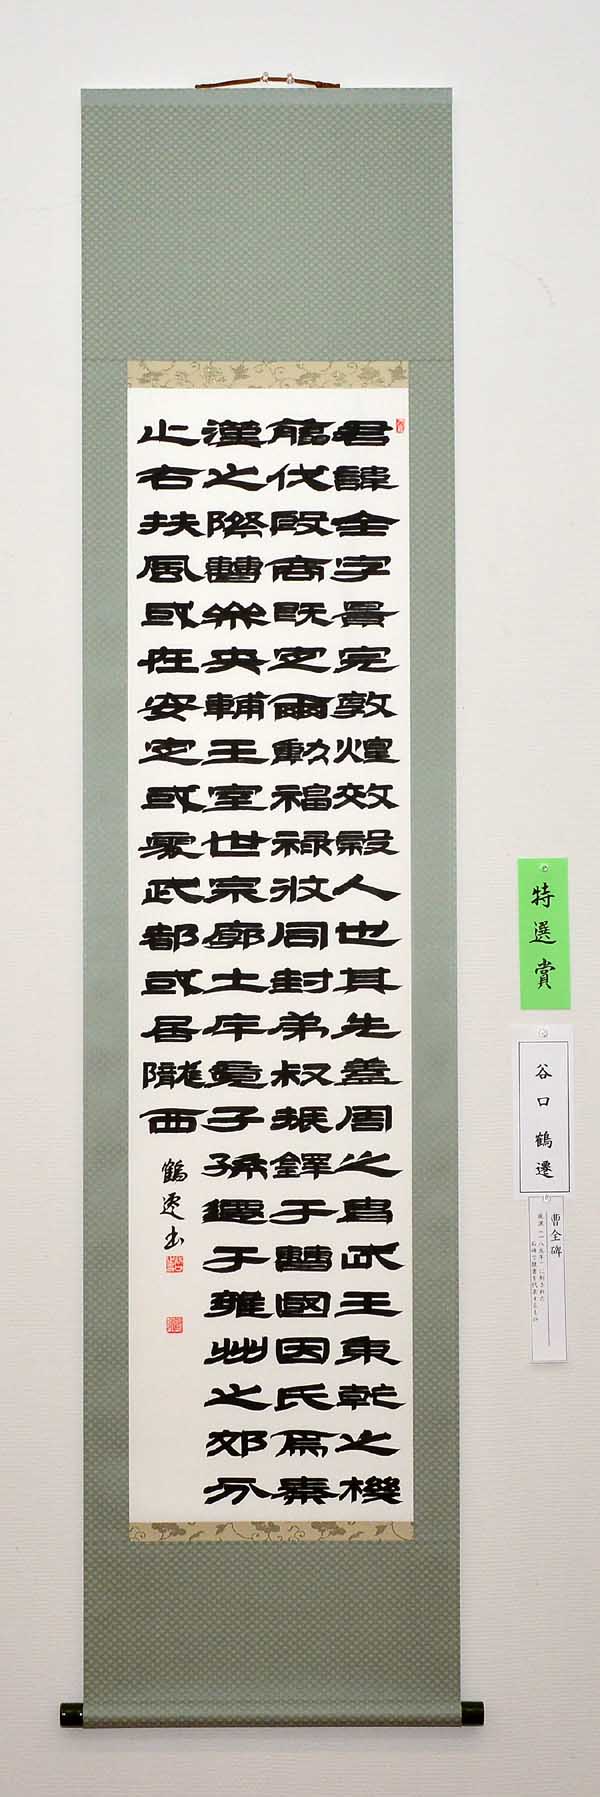 君諱全字景完敦煌效穀人也其先蓋周之胄武王秉乾之機
翦伐殷商既定爾勳福禄攸同封弟叔振鐸于曹國因氏焉秦
漢之際曹參夾輔王室世宗廓土斥竟子孫遷于雍州之郊分
止右扶風或在安定或處武都或居隴西
鶴遷書
特選賞
谷口 鶴遷
曹全碑